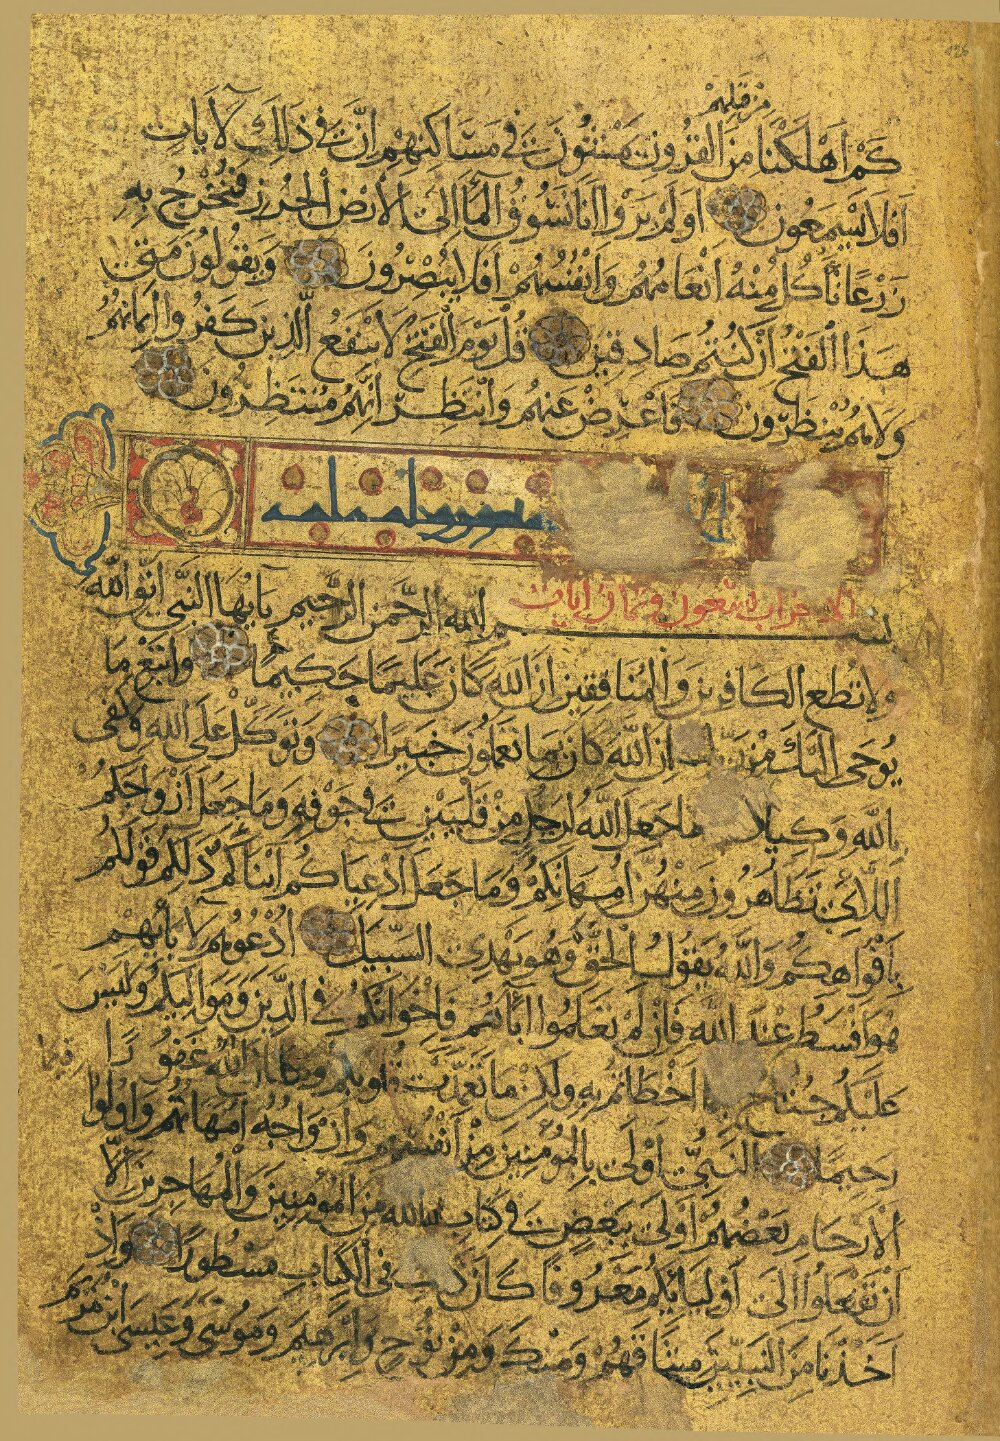 من قبلهم
كم أهلكنا من القرون يمشون في مساكنهم إن في ذلك لآيات
أفلا يسمعون أولم يروا أنا نسوق الماء إلى الأرض الجرز فنخرج به
زرعا تأكل منه أنعامهم وأنفسهم أفلا يبصرون ويقولون متى
هذا الفتح إن كنتم صادقين قل يوم الفتح لا ينفع الذين كفروا إيمانهم
ولا هم ينظرون فأعرض عنهم وانتظر إنهم منتظرون
الاحزاب سبعون وثمان ايات
بسم الله الرحمن الرحيم يا يها النبي اتق الله
ولا تطع الكافرين والمنافقين إن الله كان عليما حكيما واتبع ما
يوحى إليك من إن الله كان بما تعملون خبيرا وتوكل على الله وكفى
بالله وكيلا ما جعل الله لرجل من قلبين في جوفه وما جعل أزواجكم
اللائي تظاهرون منهن أمهاتكم وما جعل أدعياكم أبناكم ذلكم قولكم
بأفواهكم والله يقول الحق وهو يهدي السبيل ادعوهم لآبائهم
هو أقسط عند الله فإن لم تعلموا آباءهم فإخوانكم في الدين ومواليكم وليس
عليكم جناح أخطأتم به ولكن ما تعمدت قلوبكم وكان الله غفورا
رحيما النبي أولى بالمؤمنين من أنفسهم وأزواجه أمهاتهم وأولوا
الأرحام بعضهم أولى ببعض في كتاب الله من المؤمنين والمهاجرين إلا
أن تفعلوا إلى أوليائكم معروفا كان ذلك في الكتاب مسطورا وإذ
أخذنا من النبيين ميثاقهم ومنك ومن نوح وإبرهيم وموسى وعيسى ابن مريم